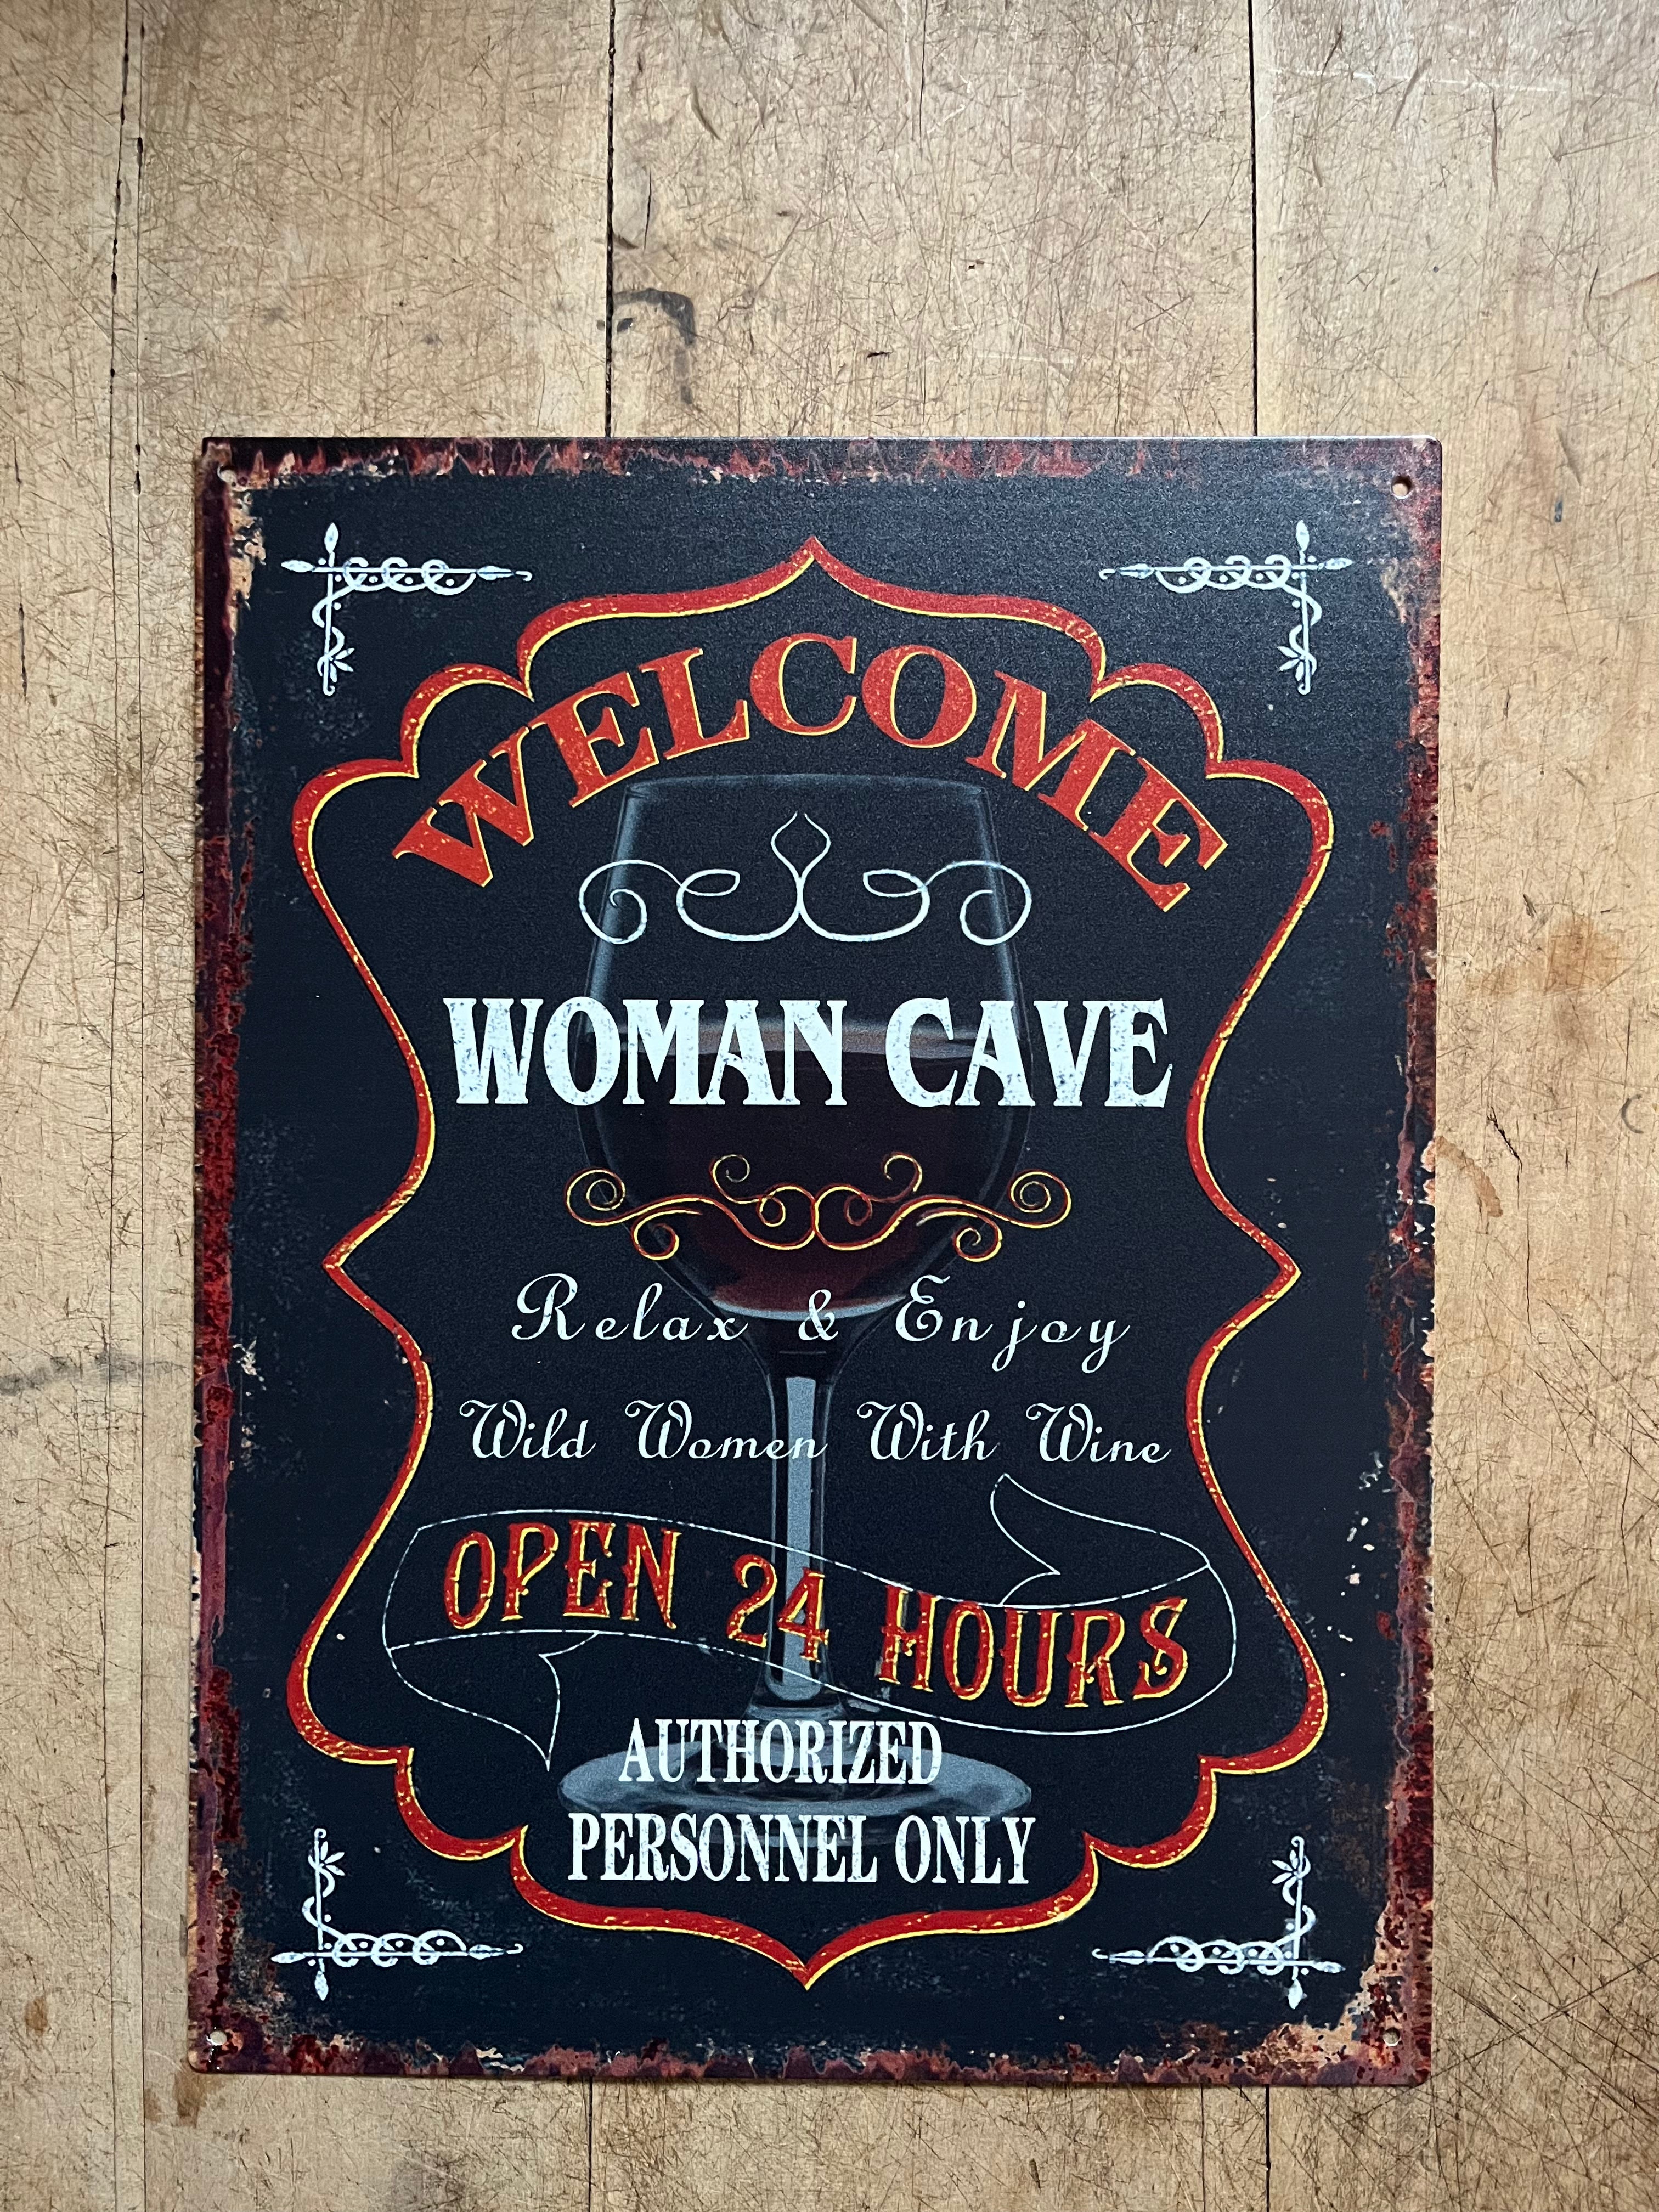 WELCOME
WOMAN CAVE
Relax & Enjoy
Wild Women With Wine
OPEN 24 HOURS
AUTHORIZED
PERSONNEL ONLY